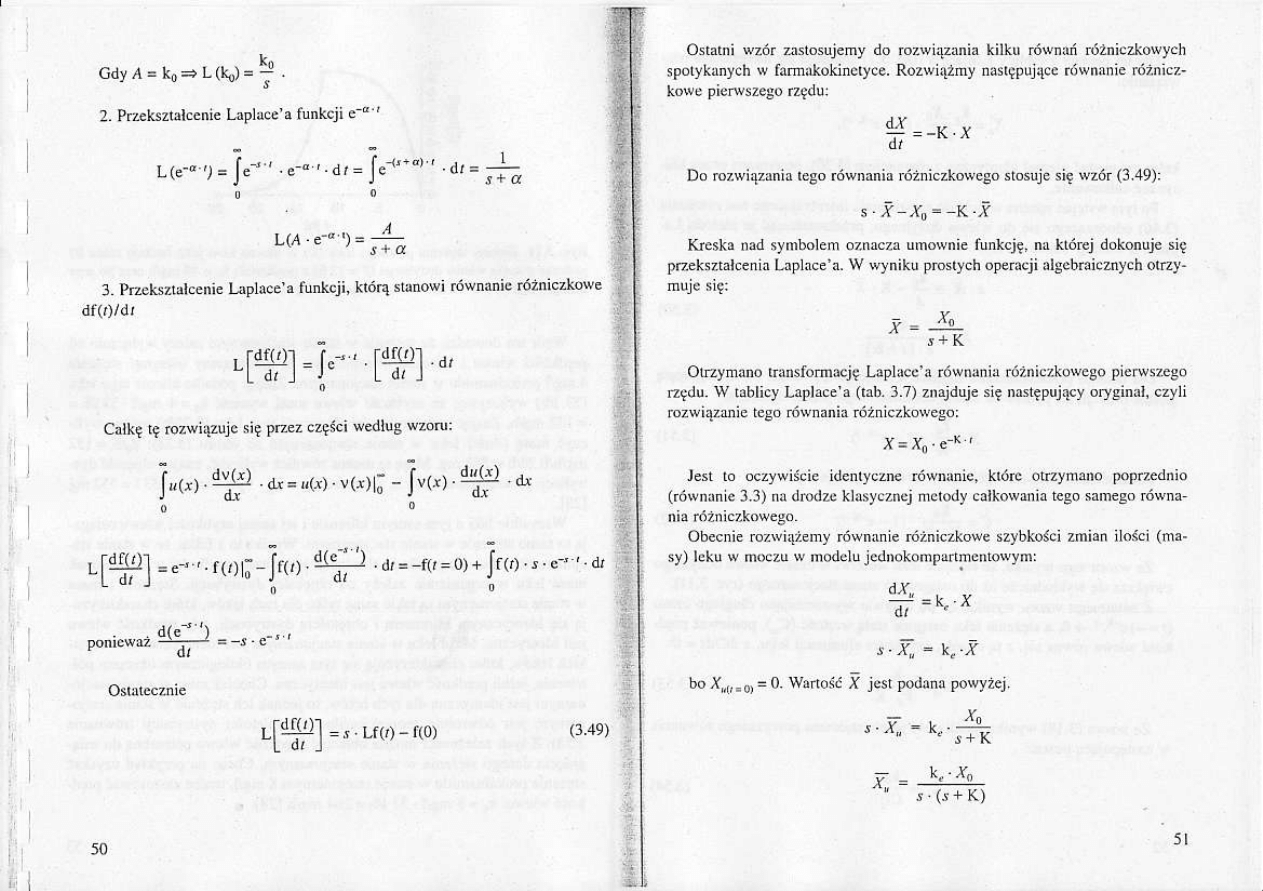 Gdy A = k₀ ⇒ L (k₀) = k₀/s .
2. Przekształcenie Laplace'a funkcji e^(−α · t)
L (e^(−α · t)) = ∫₀^∞ e^(−s · t) · e^(−α · t) · dt = ∫₀^∞ e^(−(s + α) · t) · dt = 1/(s + α)
L(A · e^(−α · t)) = A/(s + α)
3. Przekształcenie Laplace'a funkcji, którą stanowi równanie różniczkowe
df(t)/dt
L[df(t)/dt] = ∫₀^∞ e^(−s · t) · [df(t)/dt] · dt
Całkę tę rozwiązuje się przez części według wzoru:
∫₀^∞ u(x) · dv(x)/dx · dx = u(x) · v(x)|₀^∞ − ∫₀^∞ v(x) · du(x)/dx · dx
L[df(t)/dt] = e^(−s · t) · f(t)|₀^∞ − ∫₀^∞ f(t) · d(e^(−s · t))/dt · dt = −f(t = 0) + ∫₀^∞ f(t) · s · e^(−s · t) · dt
ponieważ d(e^(−s · t))/dt = −s · e^(−s · t)
Ostatecznie
L[df(t)/dt] = s · Lf(t) − f(0) (3.49)
50
Ostatni wzór zastosujemy do rozwiązania kilku równań różniczkowych
spotykanych w farmakokinetyce. Rozwiążmy następujące równanie różnicz-
kowe pierwszego rzędu:
dX/dt = −K · X
Do rozwiązania tego równania różniczkowego stosuje się wzór (3.49):
s · X̅ − X₀ = −K · X̅
Kreska nad symbolem oznacza umownie funkcję, na której dokonuje się
przekształcenia Laplace'a. W wyniku prostych operacji algebraicznych otrzy-
muje się:
X̅ = X₀/(s + K)
Otrzymano transformację Laplace'a równania różniczkowego pierwszego
rzędu. W tablicy Laplace'a (tab. 3.7) znajduje się następujący oryginał, czyli
rozwiązanie tego równania różniczkowego:
X = X₀ · e^(−K · t)
Jest to oczywiście identyczne równanie, które otrzymano poprzednio
(równanie 3.3) na drodze klasycznej metody całkowania tego samego równa-
nia różniczkowego.
Obecnie rozwiążemy równanie różniczkowe szybkości zmian ilości (ma-
sy) leku w moczu w modelu jednokompartmentowym:
dX_u/dt = k_e · X
s · X̅_u = k_e · X̅
bo X_u(t = 0) = 0. Wartość X̅ jest podana powyżej.
s · X̅_u = k_e · X₀/(s + K)
X̅_u = k_e · X₀/(s · (s + K))
51